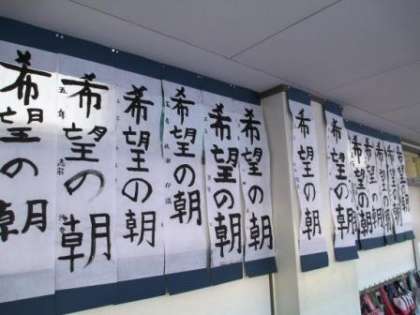 希望の朝
希望の朝
希望の朝
希望の朝
希望の朝
希望の朝
希望の朝
希望の朝
希望の朝
希望の朝
希望の朝
五年
希望の朝